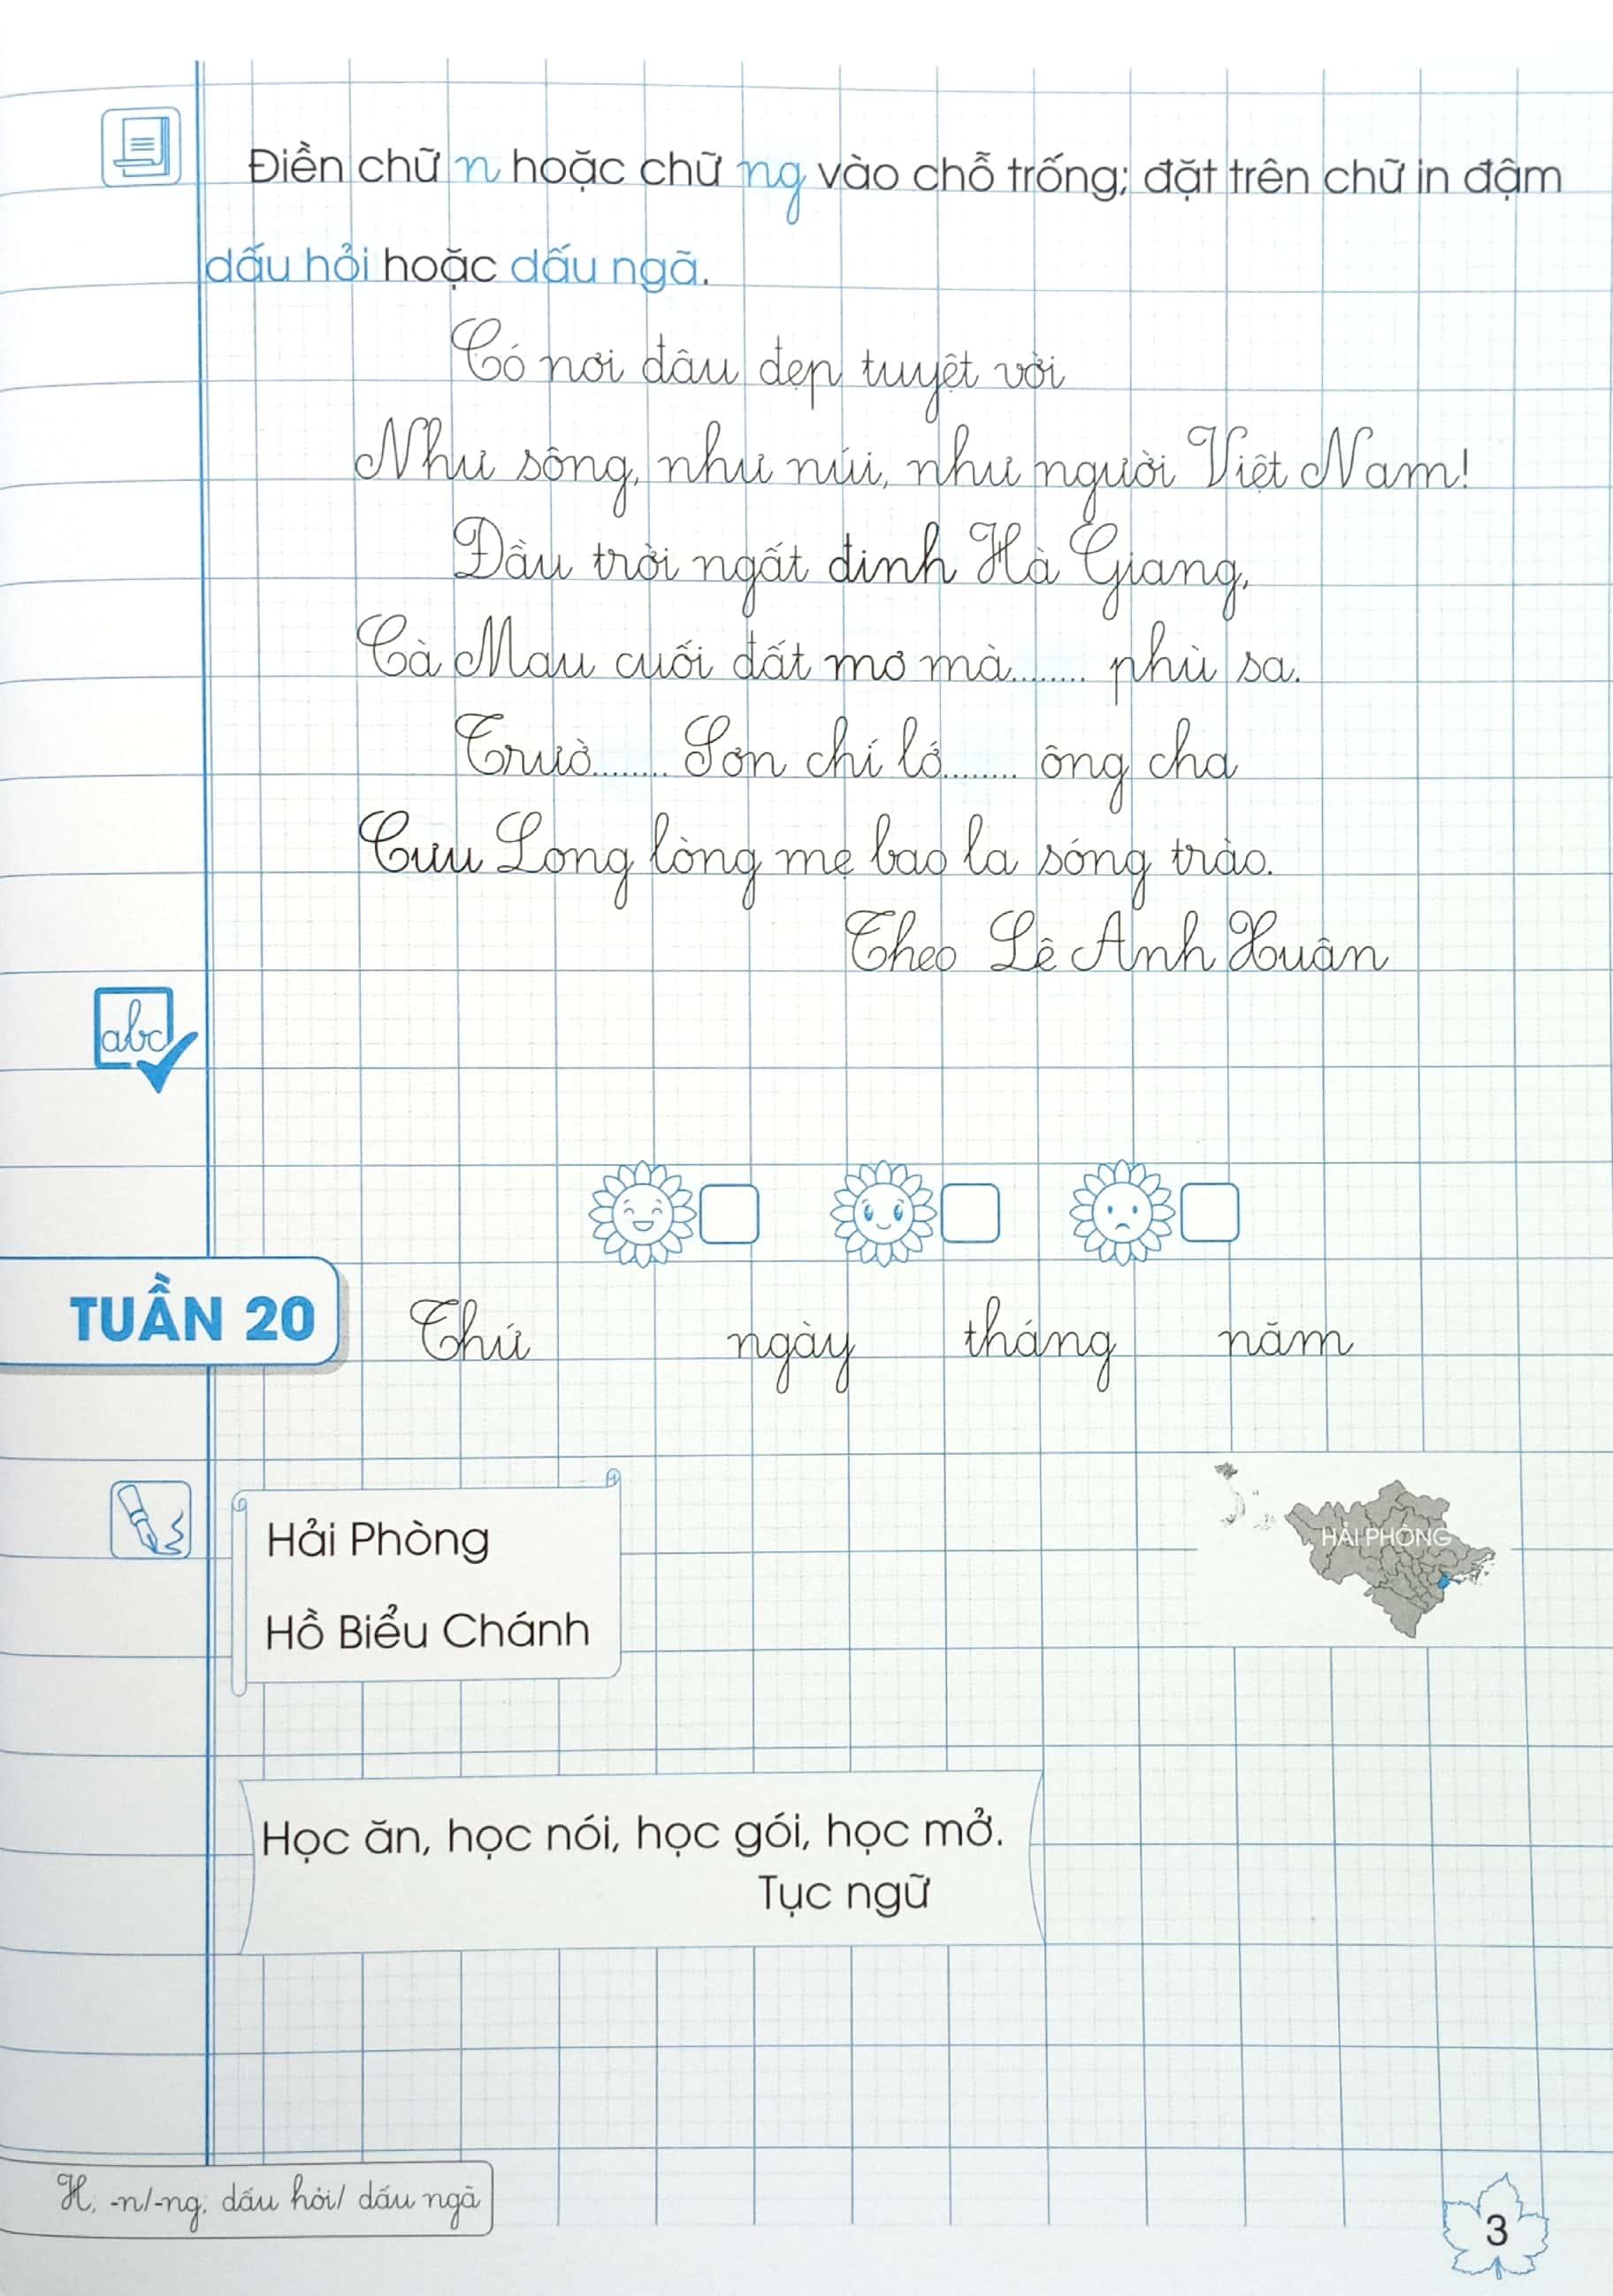 Điền chữ n hoặc chữ ng vào chỗ trống; đặt trên chữ in đậm
dấu hỏi hoặc dấu ngã.
Có nơi đâu đẹp tuyệt vời
Như sông, như núi, như người Việt Nam!
Đầu trời ngất đinh Hà Giang,
Cà Mau cuối đất mơ mà........ phù sa.
Trườ........ Sơn chí lớ........ ông cha
Cưu Long lòng mẹ bao la sóng trào.
Theo Lê Anh Xuân
abc
TUẦN 20 Thứ ngày tháng năm
Hải Phòng
Hồ Biểu Chánh
HẢI PHÒNG
Học ăn, học nói, học gói, học mở.
Tục ngữ
H, -n/-ng, dấu hỏi/ dấu ngã
3